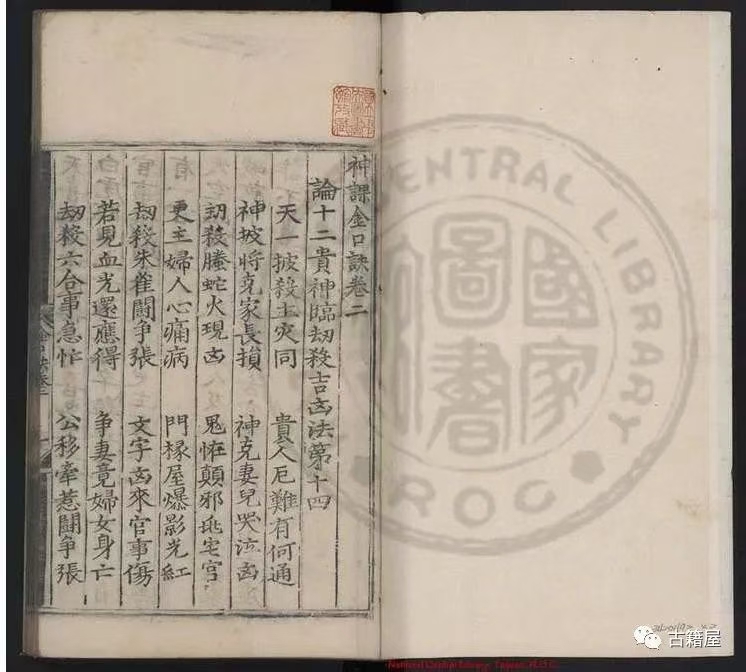 神課金口訣卷二
論十二貴神臨刼殺吉凶法第十四
天一披殺主灾同　貴人厄難有何通
神披將克家長損　神克妻兒哭泣凶
刼殺螣蛇火現凶　鬼恠顛邪乖宅宫
更主婦人心痛病　門椽屋爆影光紅
刼殺朱雀鬪争張　文字凶來官事傷
若見血光還應得　争妻竟婦女身亡
刼殺六合事急忙　公移牽惹鬪争張
國家圖書
CENTRAL LIBRARY
ROC
古籍屋